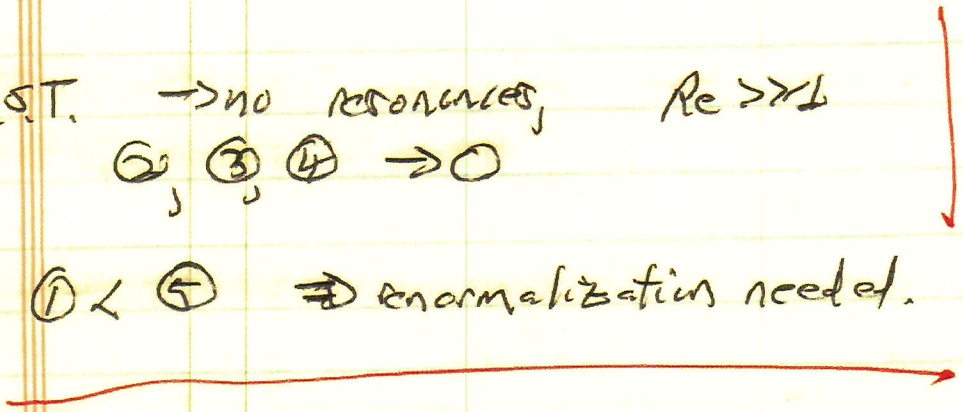 S.T. → no resonances, Re >>> 1
②, ③, ④ → 0
① < ⑤ ⇒ renormalization needed.